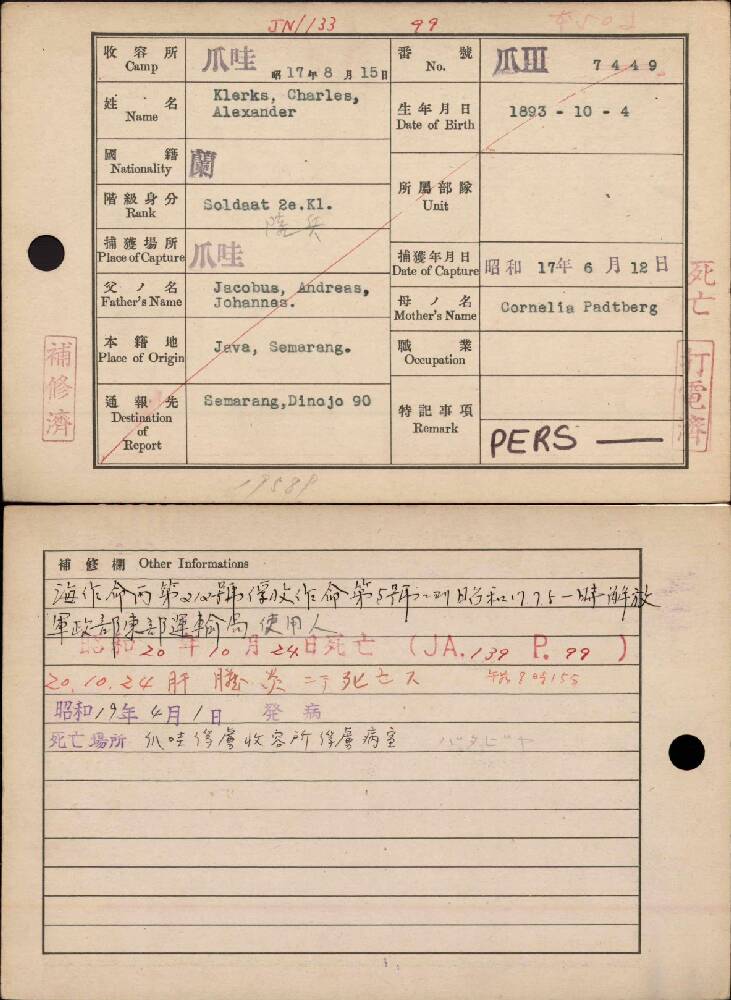 JN/133 99
收容所 Camp 爪哇 昭17年8月15日
番號 No. 爪III 7449
姓名 Name Klerks, Charles, Alexander
生年月日 Date of Birth 1893 - 10 - 4
國籍 Nationality 蘭
所屬部隊 Unit
階級身分 Rank Soldaat 2e.Kl.
陸兵
捕獲場所 Place of Capture 爪哇
捕獲年月日 Date of Capture 昭和 17年 6月 12日
父ノ名 Father's Name Jacobus, Andreas, Johannes.
母ノ名 Mother's Name Cornelia Padtberg
本籍地 Place of Origin Java, Semarang.
職業 Occupation
通報先 Destination of Report Semarang,Dinojo 90
特記事項 Remark PERS —
死亡
打電濟
補修濟
19589
補修欄 Other Informations
昭和17.7.5一時解放
軍政部東部運輸局使用人
昭和20年10月24日死亡 (JA.139 P.99)
20.10.24 肝臓炎ニテ死亡ス 午前8時155
昭和19年4月1日 発病
死亡場所 爪哇俘虜收容所俘虜病室 バタビヤ